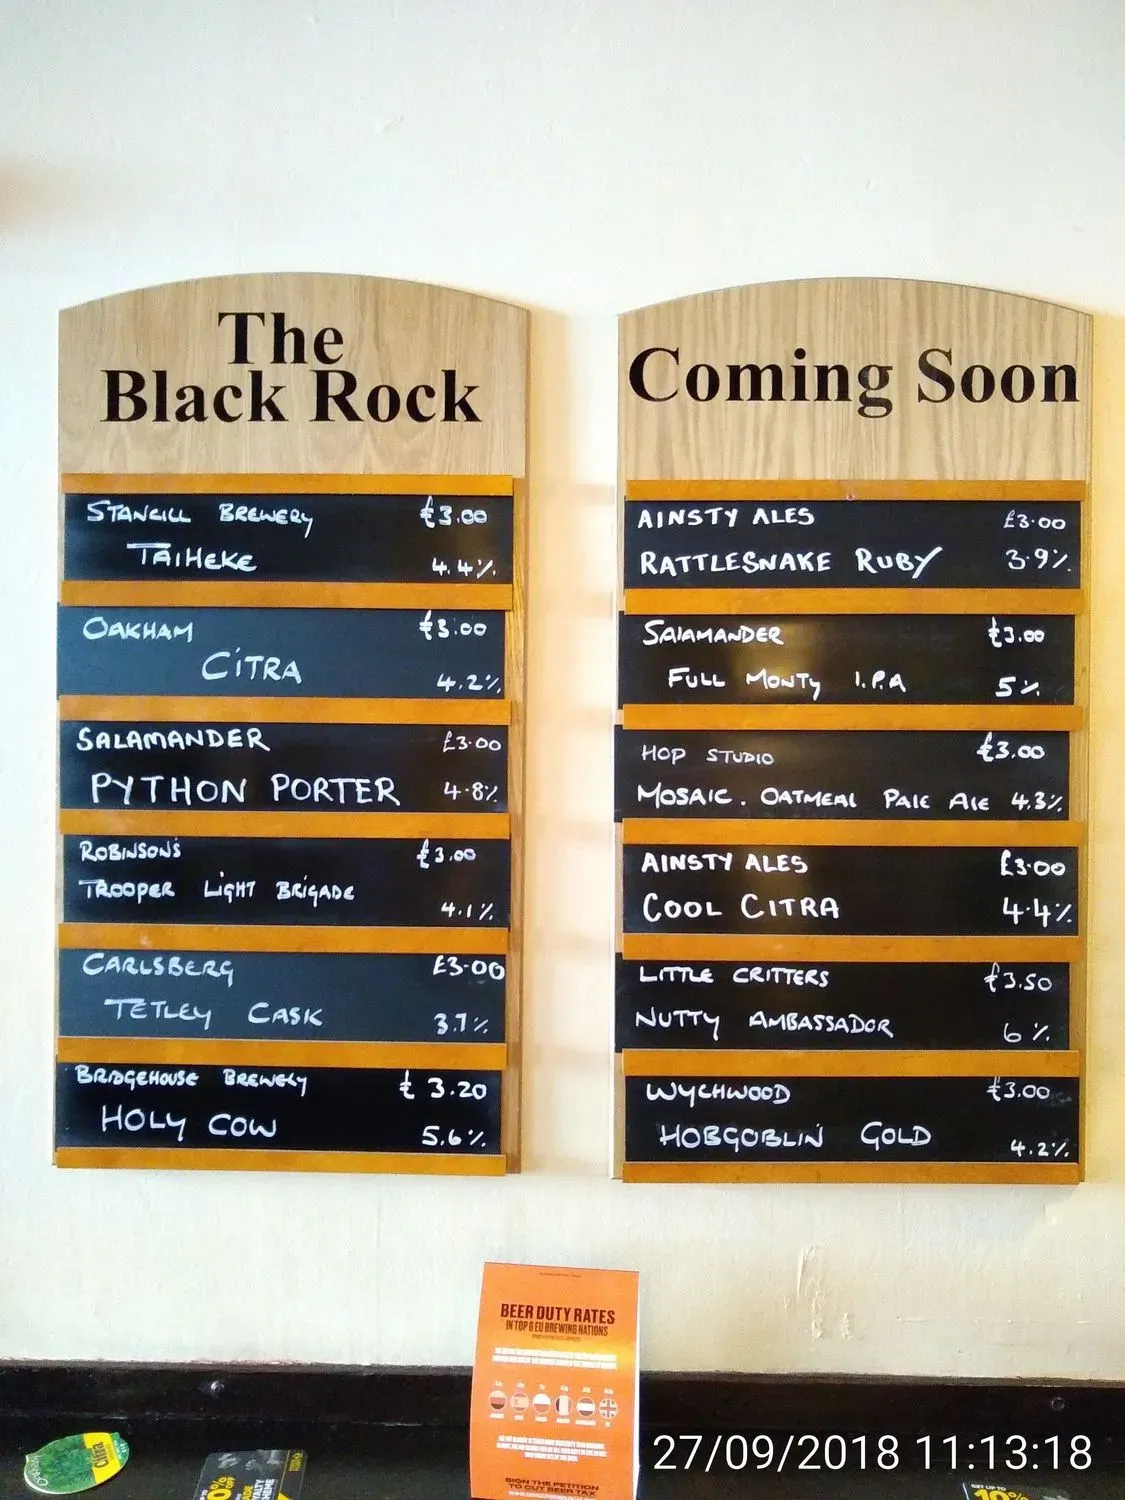 The
Black Rock
STANCILL BREWERY £3.00
TAIHEKE 4.4%
OAKHAM £3.00
CITRA 4.2%
SALAMANDER £3.00
PYTHON PORTER 4.8%
ROBINSONS £3.00
TROOPER LIGHT BRIGADE
4.1%
CARLSBERG £3.00
TETLEY CASK 3.7%
BRIDGEHOUSE BREWERY £3.20
HOLY COW 5.6%
Coming Soon
AINSTY ALES £3.00
RATTLESNAKE RUBY 3.9%
SALAMANDER £3.00
FULL MONTY I.P.A 5%
HOP STUDIO £3.00
MOSAIC. OATMEAL PALE ALE 4.3%
AINSTY ALES £3.00
COOL CITRA 4.4%
LITTLE CRITTERS £3.50
NUTTY AMBASSADOR 6%
WYCHWOOD £3.00
HOBGOBLIN GOLD 4.2%
BEER DUTY RATES
IN TOP 6 EU BREWING NATIONS
SIGN THE PETITION
TO CUT BEER TAX
Citra
10%
27/09/2018 11:13:18